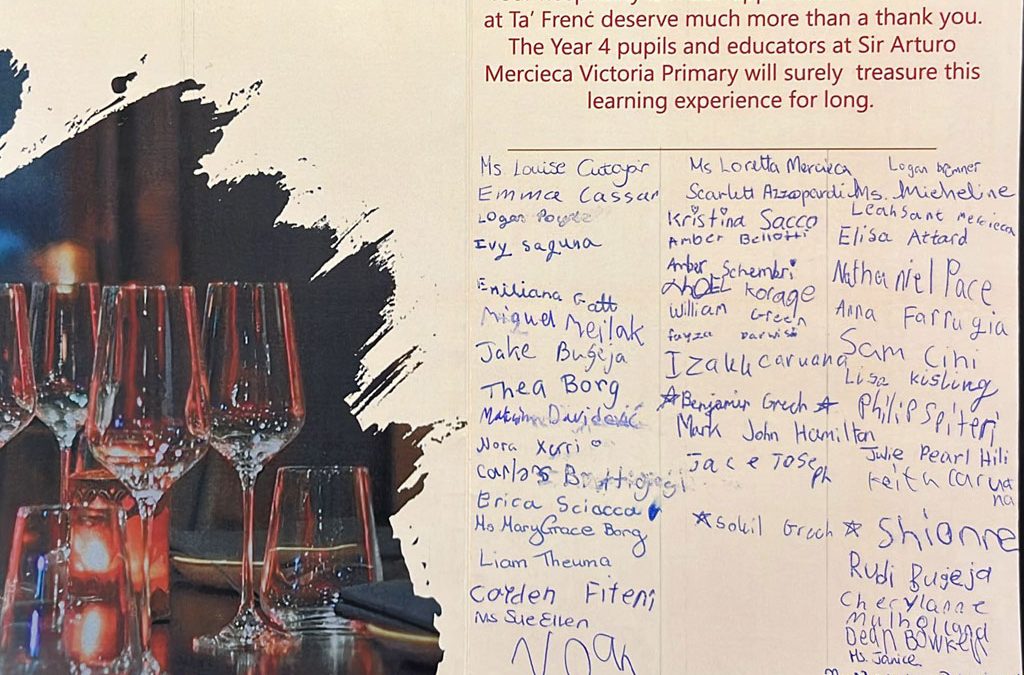 at Ta’ Frenċ deserve much more than a thank you.
The Year 4 pupils and educators at Sir Arturo
Mercieca Victoria Primary will surely treasure this
learning experience for long.
Ms Louise Cutajar
Emma Cassar
Logan
Ivy Saguna
Emiliana Gatt
Miguel Mejlak
Jake Buġeja
Thea Borg
Maksim Davidović
Nora Xerri
Carlos
Erica Sciacca
Ms MaryGrace Borg
Liam Theuma
Cayden Fiteni
Ms Sue Ellen
Noah
Ms Loretta Mercieca
Scarlett Azzopardi
Kristina Sacco
Amber Bellotti
Amber Schembri
Korage
William Green
Fayza Darwish
Izakk Caruana
Benjamin Grech
Mark John Hamilton
Jace Jose
ph
Soleil Grech
Logan
Ms. Micheline
Leah Sant Mercieca
Elisa Attard
Nathaniel Pace
Anna Farrugia
Sam Cini
Lisa Kisling
Philip Spiteri
Julie Pearl Hili
Keita Carua
na
Shianne
Rudi Bugeja
Cherylanne
Mulholland
Dean Bowker
Ms. Janice